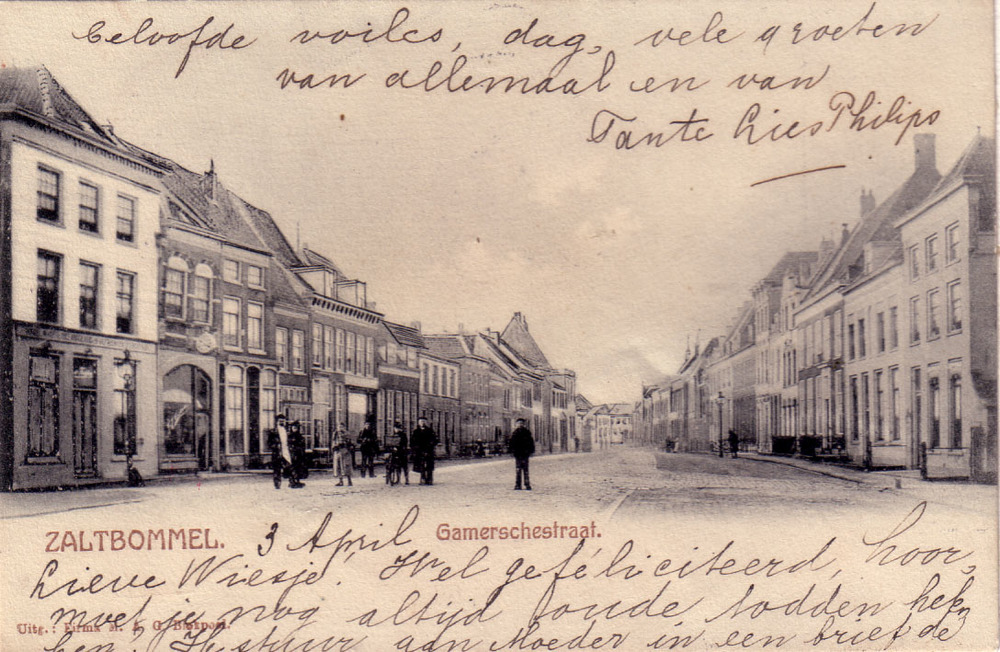 beloofde voiles, dag, vele groeten
van allemaal en van
Tante Lies Philips
ZALTBOMMEL.
3 April
Gamerschestraat.
Lieve Wiesje! Wel gefeliciteerd, hoor,
moet je nog altijd oude todden heb
Uitg.: Firma
ben. Ik stuur aan Moeder in een brief de